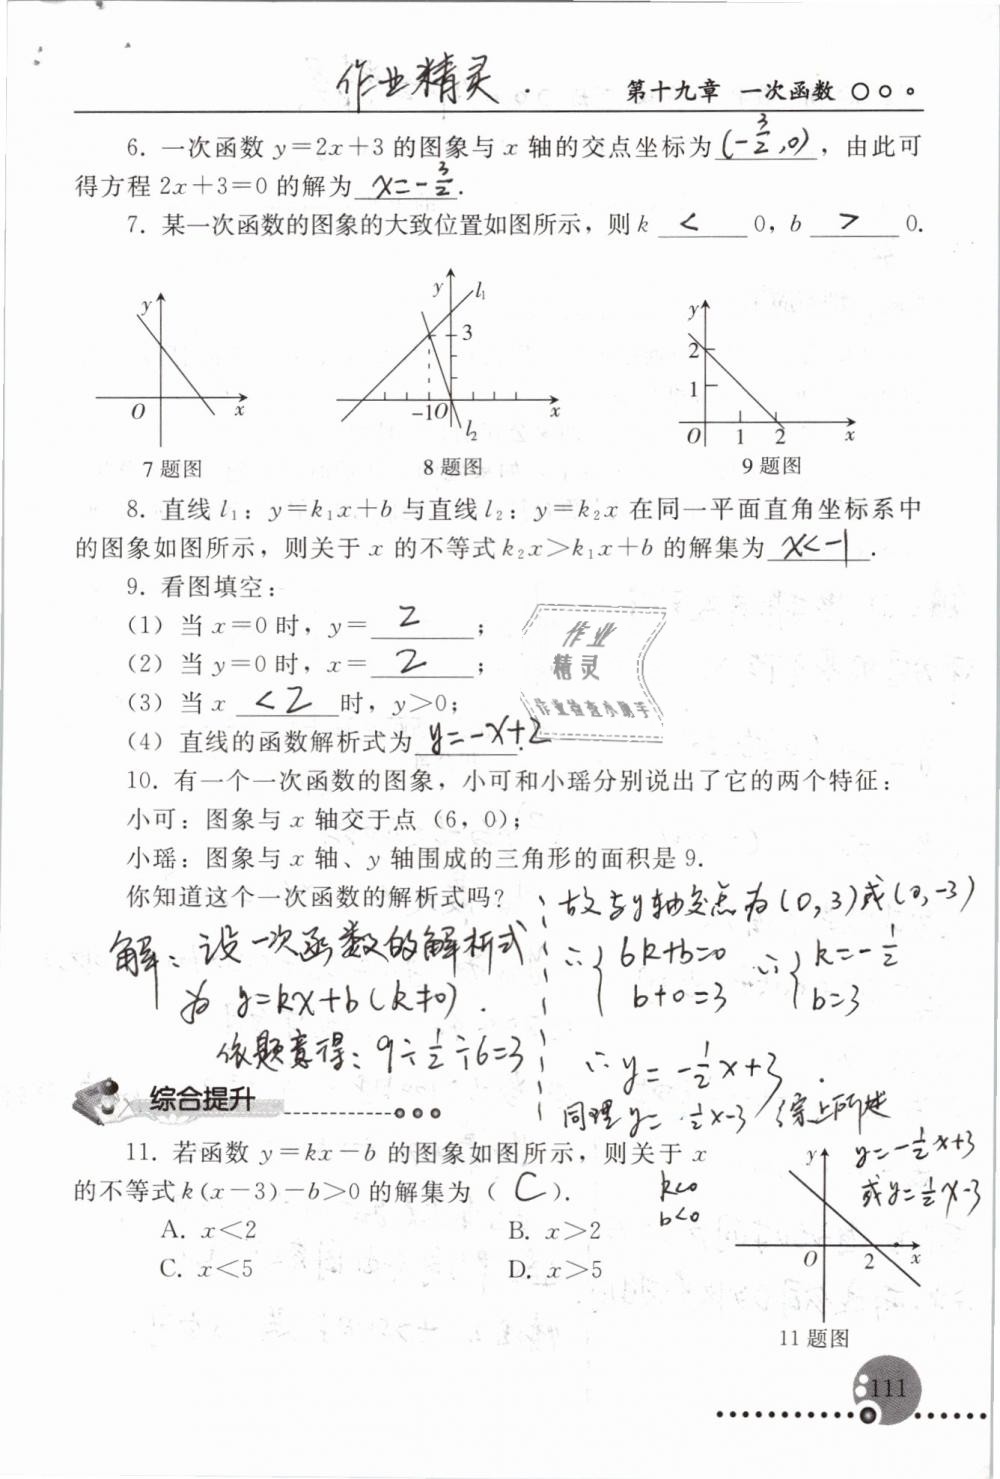 作业精灵.
第十九章 一次函数
6. 一次函数 y=2x+3 的图象与 x 轴的交点坐标为 (-3/2,0) ，由此可
得方程 2x+3=0 的解为 x=-3/2.
7. 某一次函数的图象的大致位置如图所示，则 k < 0，b > 0.
y
O
x
7题图
y
l₁
3
-1O
x
l₂
8题图
y
2
1
O
1
2
x
9题图
8. 直线 l₁：y=k₁x+b 与直线 l₂：y=k₂x 在同一平面直角坐标系中
的图象如图所示，则关于 x 的不等式 k₂x>k₁x+b 的解集为 x<-1 .
9. 看图填空：
(1) 当 x=0 时，y= 2 ；
(2) 当 y=0 时，x= 2 ；
(3) 当 x <2 时，y>0；
(4) 直线的函数解析式为 y=-x+2 .
作业
精灵
作业检查小助手
10. 有一个一次函数的图象，小可和小瑶分别说出了它的两个特征：
小可：图象与 x 轴交于点（6，0）；
小瑶：图象与 x 轴、y 轴围成的三角形的面积是 9.
你知道这个一次函数的解析式吗？
解：设一次函数的解析式
为 y=kx+b(k≠0).
依题意得：9÷1/2÷6=3
故与y轴交点为(0,3)或(0,-3)
∴{6k+b=0 ∴{k=-1/2
b+0=3 b=3
∴y=-1/2x+3.
同理y=1/2x-3 综上所述
y=-1/2x+3
或y=1/2x-3
综合提升
11. 若函数 y=kx-b 的图象如图所示，则关于 x
的不等式 k(x-3)-b>0 的解集为（ C ）.
k<0
b<0
A. x<2 B. x>2
C. x<5 D. x>5
y
O
2
x
11题图
111